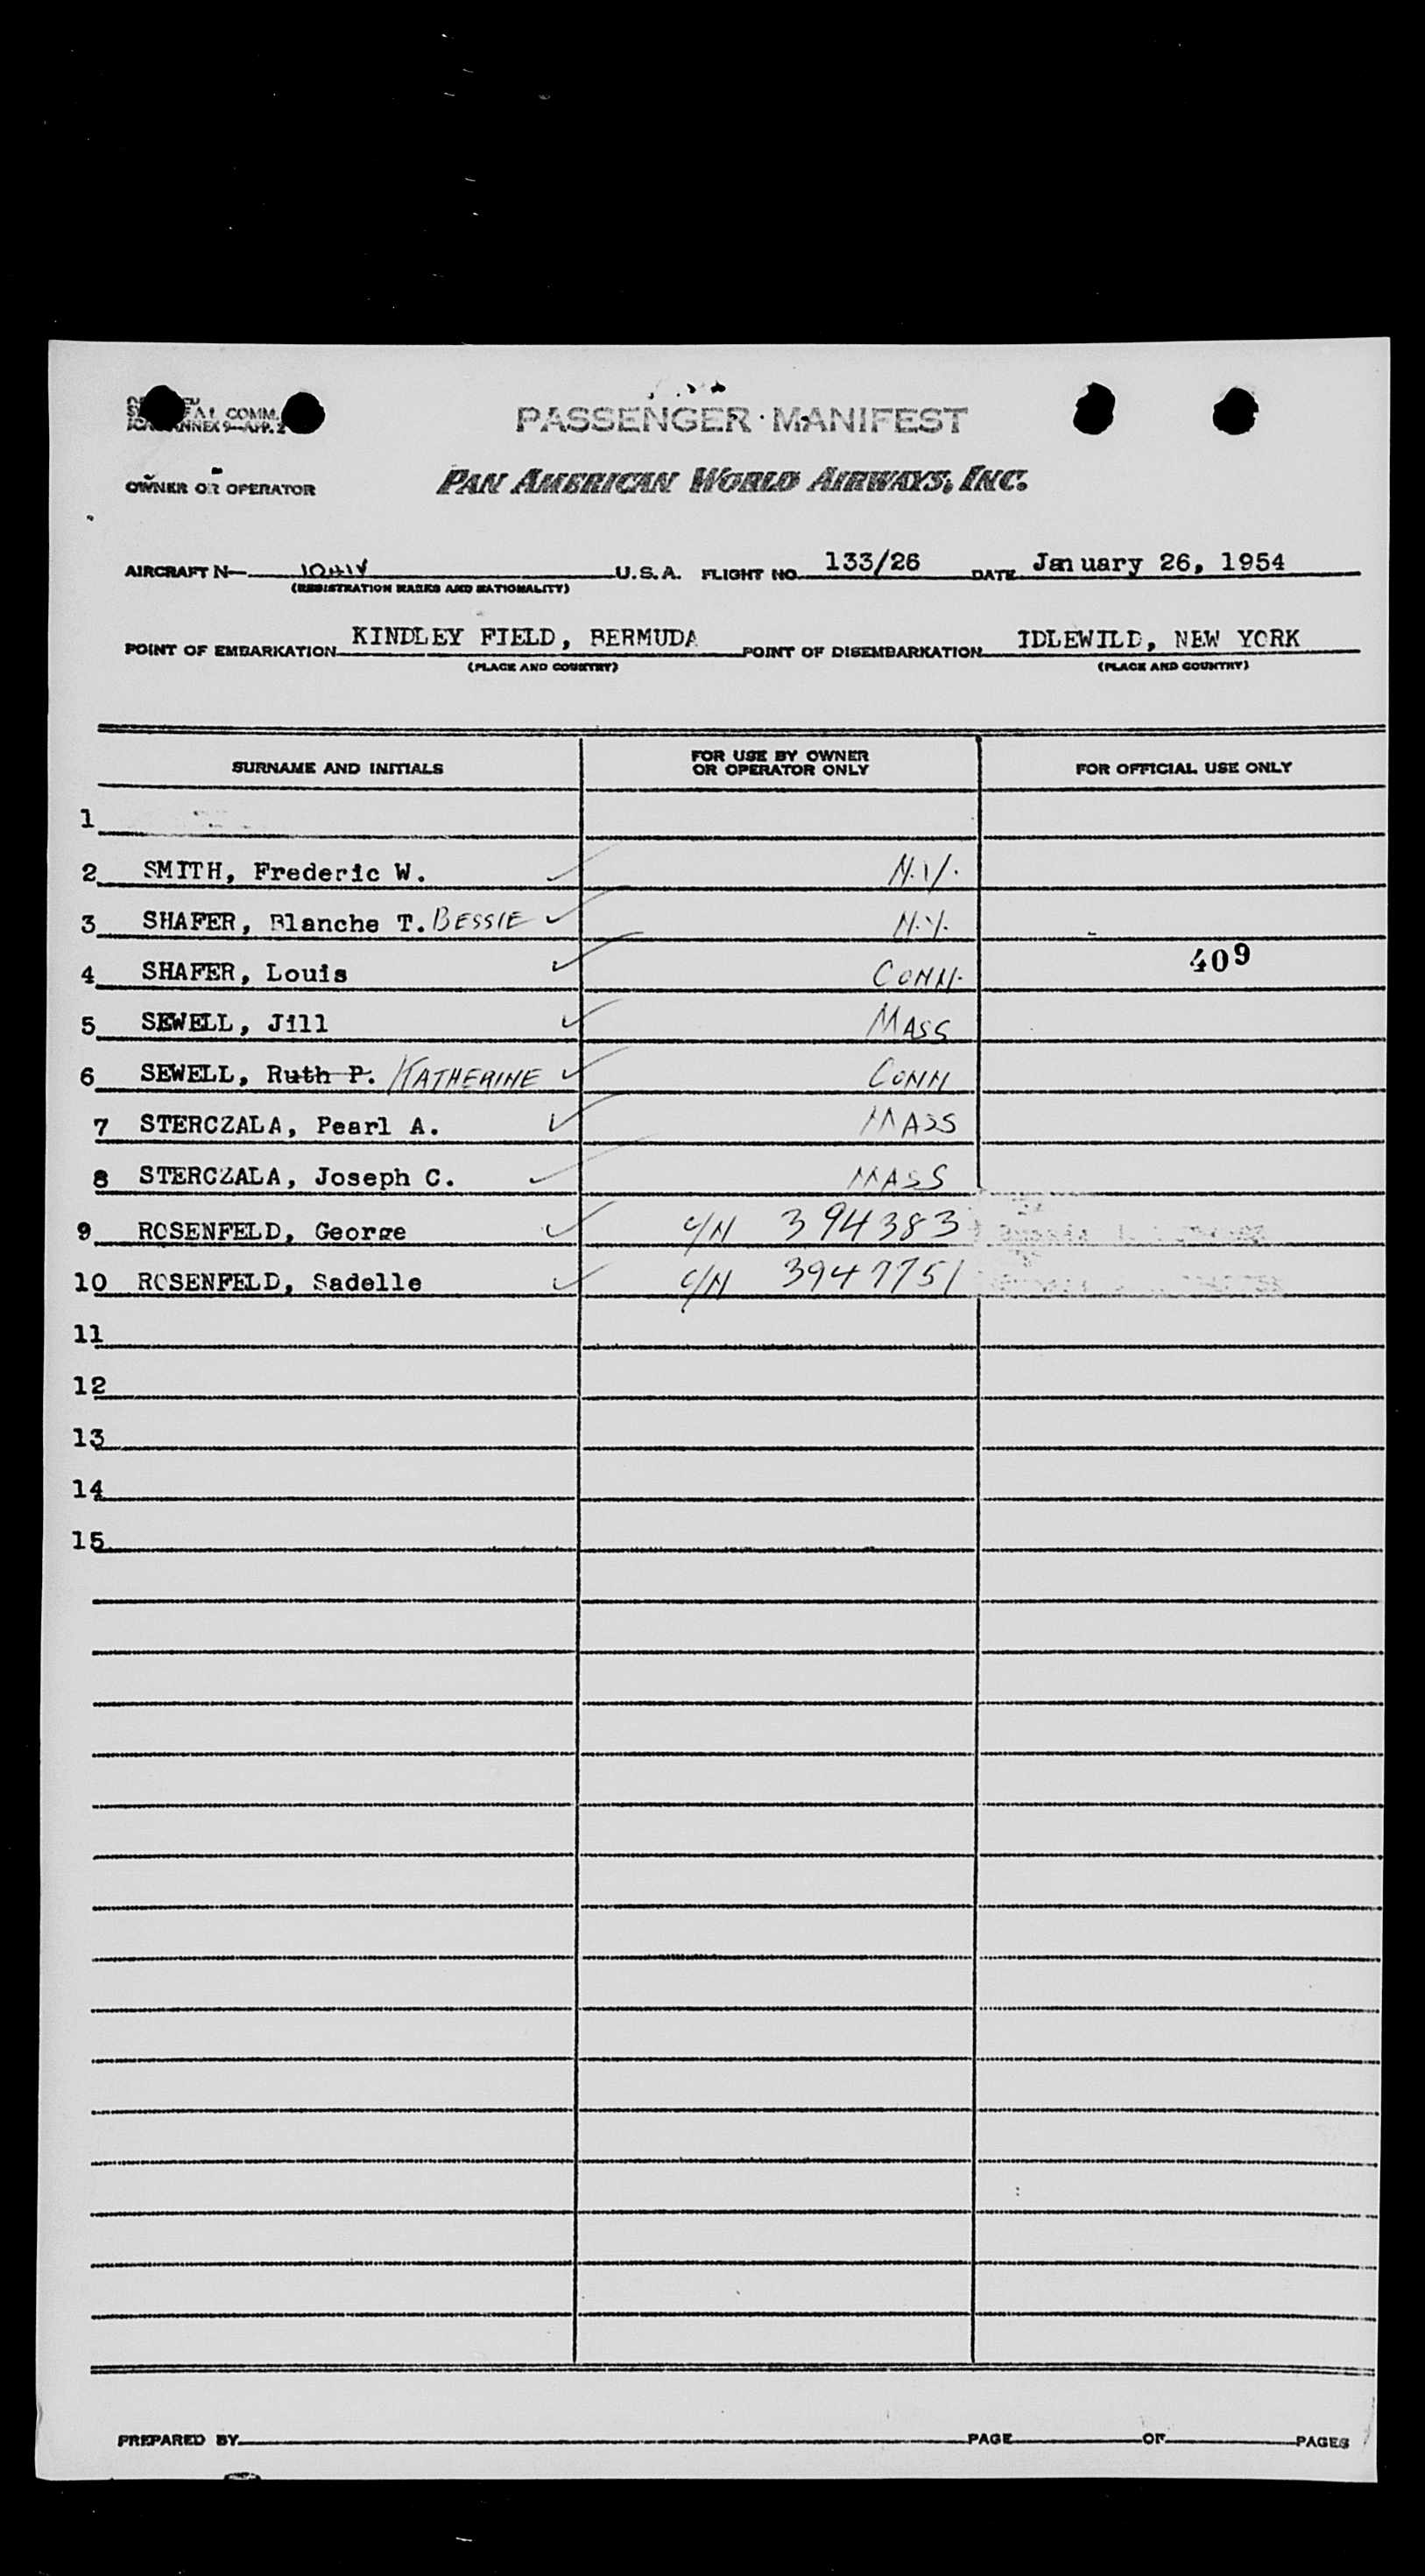 COMM.
ANNEX 9—APP. 2
PASSENGER MANIFEST
OWNER OR OPERATOR PAN AMERICAN WORLD AIRWAYS, INC.
AIRCRAFT N— U.S.A. FLIGHT NO. 133/26 DATE January 26, 1954
(REGISTRATION MARKS AND NATIONALITY)
POINT OF EMBARKATION KINDLEY FIELD, BERMUDA POINT OF DISEMBARKATION IDLEWILD, NEW YORK
(PLACE AND COUNTRY) (PLACE AND COUNTRY)
SURNAME AND INITIALS FOR USE BY OWNER OR OPERATOR ONLY FOR OFFICIAL USE ONLY
1
2 SMITH, Frederic W. N.Y.
3 SHAFER, Blanche T. BESSIE N.Y.
4 SHAFER, Louis CONN. 409
5 SEWELL, Jill MASS
6 SEWELL, Ruth P. KATHERINE CONN
7 STERCZALA, Pearl A. MASS
8 STERCZALA, Joseph C. MASS
9 ROSENFELD, George C/N 394383
10 ROSENFELD, Sadelle C/N 3947751
11
12
13
14
15
PREPARED BY PAGE OF PAGES